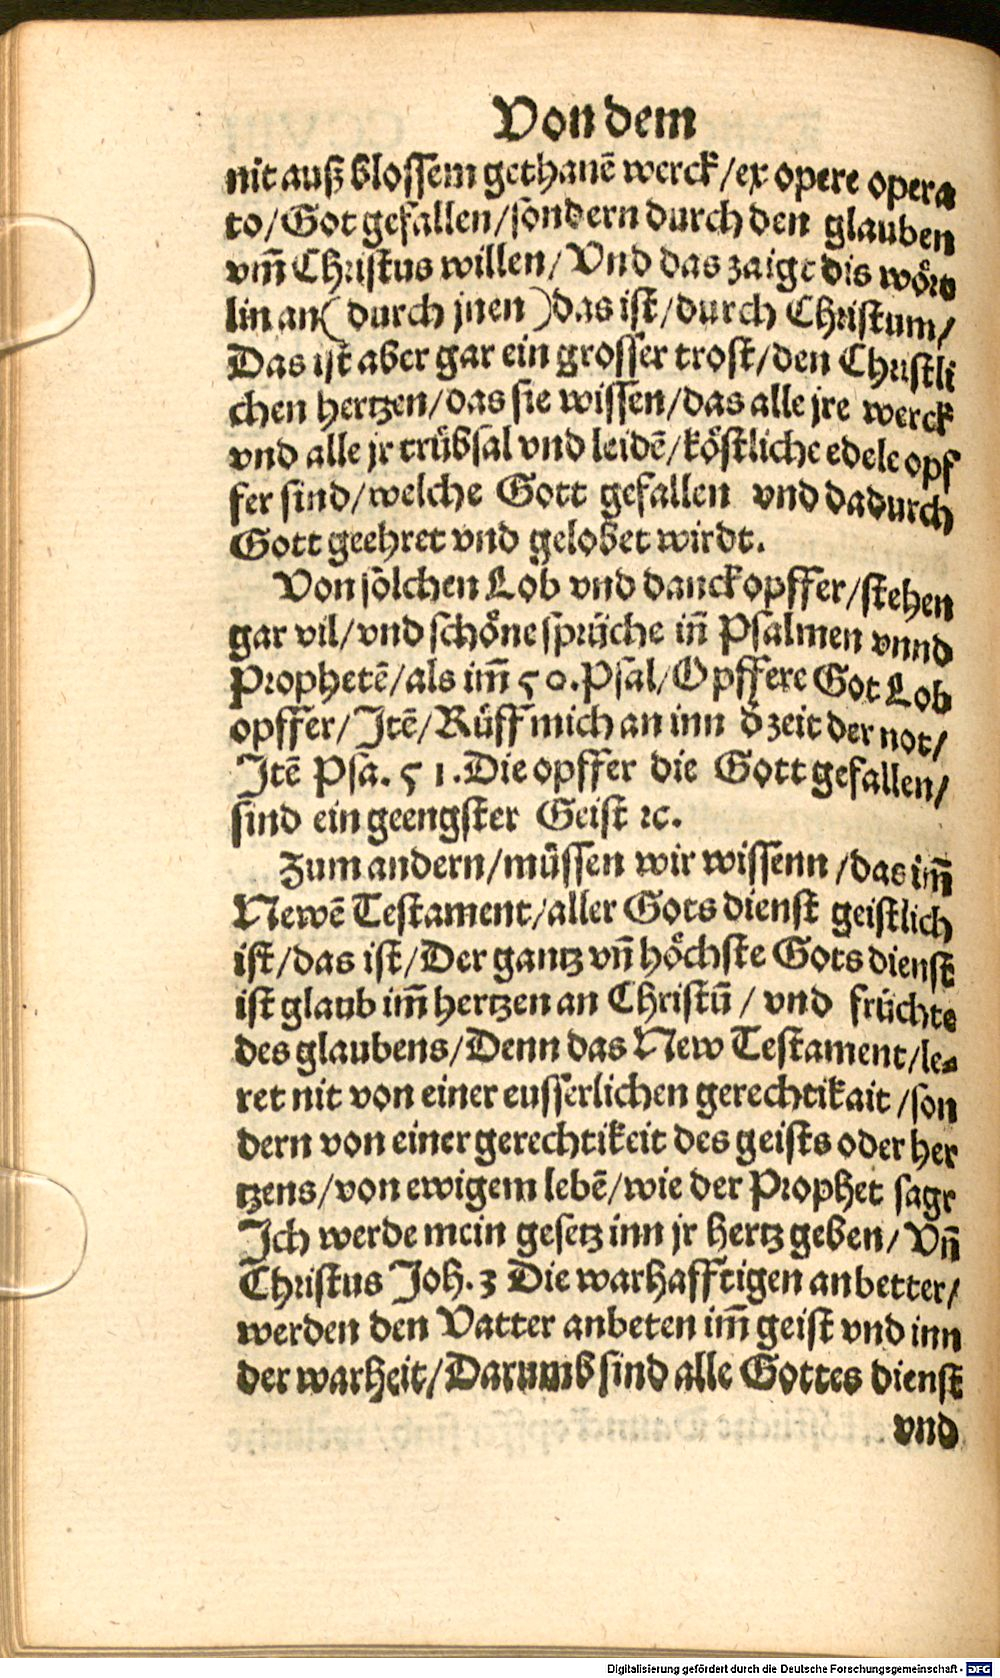 Von dem
nit auß blossem gethanē werck/ex opere opera
to/Got gefallen/sondern durch den glauben
vm̄ Christus willen/Vnd das zaigt dis wört
lin an( durch jnen )das ist/durch Christum/
Das ist aber gar ein grosser trost/den Christli
chen hertzen/das sie wissen/das alle jre werck
vnd alle jr trübsal vnd leidē/köstliche edele opf
fer sind/welche Gott gefallen vnd dadurch
Gott geehret vnd gelobet wirdt.
Von solchen Lob vnd danckopffer/stehen
gar vil/vnd schöne sprüche in̄ Psalmen vnnd
Prophetē/als im̄ 50.Psal/Opffere Got Lob
opffer/Itē/Rüff mich an inn d̄ zeit der not/
Itē Psa. 51.Die opffer die Gott gefallen/
sind ein geengster Geist ꝛc.
Zum andern/müssen wir wissenn/das im̄
Newē Testament/aller Gots dienst geistlich
ist/das ist/Der gantz vn̄ höchste Gots dienst
ist glaub im̄ hertzen an Christū/ vnd früchte
des glaubens/Denn das New Testament/le⸗
ret nit von einer eusserlichen gerechtikait/son
dern von einer gerechtikeit des geists oder her
tzens/von ewigem lebē/wie der Prophet sagt
Ich werde mein gesetz inn jr hertz geben/Vn̄
Christus Joh.3 Die warhafftigen anbetter/
werden den Vatter anbeten im̄ geist vnd inn
der warheit/Darumb sind alle Gottes dienst
vnd
Digitalisierung gefördert durch die Deutsche Forschungsgemeinschaft - DFG